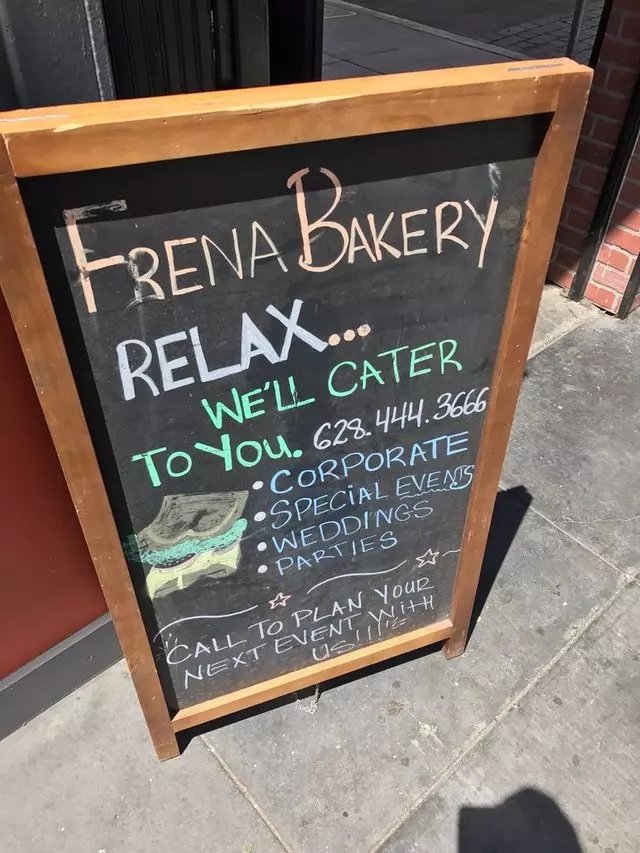 FRENA BAKERY
RELAX...
WE'LL CATER
TO YOU. 628.444.3666
• CORPORATE
• SPECIAL EVENTS
• WEDDINGS
• PARTIES
CALL TO PLAN YOUR
NEXT EVENT WITH
US!!!